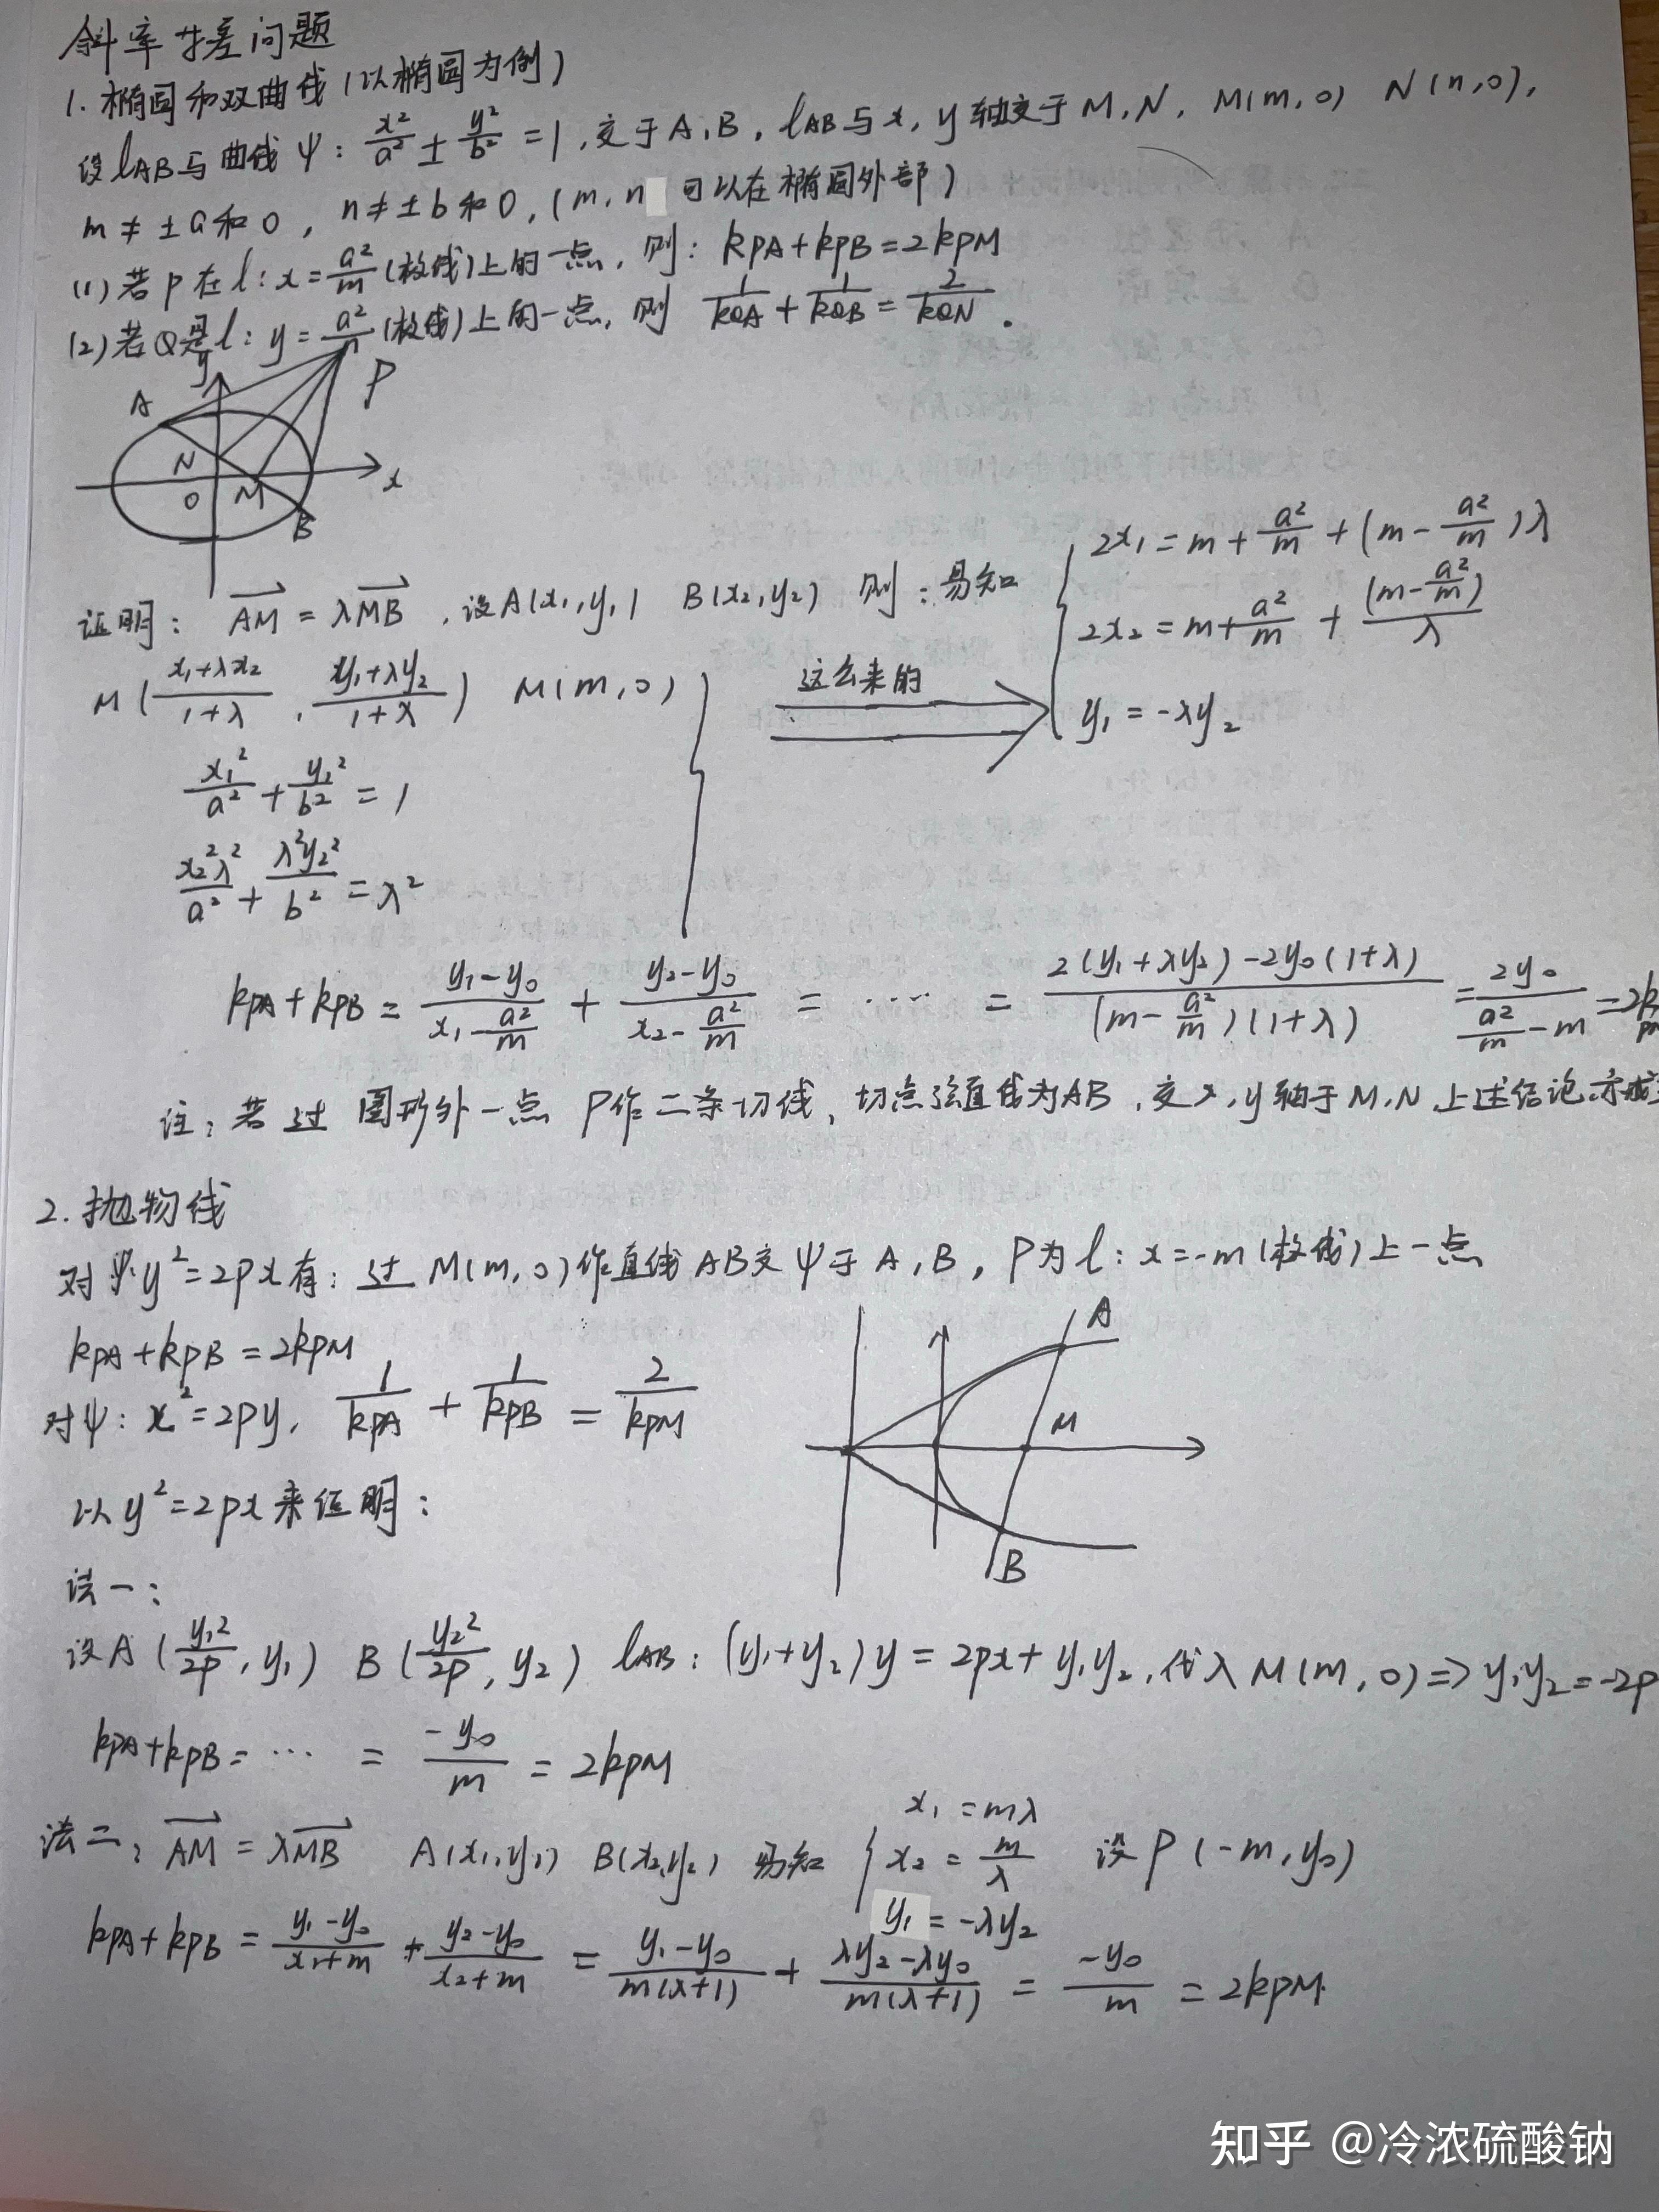 斜率等差问题
1. 椭圆和双曲线(以椭圆为例)
设lAB与曲线ψ: x²/a² ± y²/b² = 1, 交于A,B, lAB与x, y轴交于M,N, M(m,0) N(n,0),
m≠±a和0, n≠±b和0, (m,n 可以在椭圆外部)
(1) 若P在l: x=a²/m(极线)上的一点, 则: kPA+kPB=2kPM
(2) 若Q是l: y=a²/n(极线)上的一点, 则 1/kQA + 1/kQB = 2/kQN.
y
A
P
N
O
M
x
B
证明: AM = λMB, 设A(x₁,y₁) B(x₂,y₂) 则: 易知
2x₁ = m + a²/m + (m - a²/m)λ
2x₂ = m + a²/m + (m - a²/m)/λ
y₁ = -λy₂
M((x₁+λx₂)/(1+λ), (y₁+λy₂)/(1+λ)) M(m,0)
这么来的
x₁²/a² + y₁²/b² = 1
x₂²λ²/a² + λ²y₂²/b² = λ²
kPA+kPB = (y₁-y₀)/(x₁-a²/m) + (y₂-y₀)/(x₂-a²/m) = ⋯⋯ = (2(y₁+λy₂)-2y₀(1+λ))/((m-a²/m)(1+λ)) = 2y₀/(a²/m-m) = 2kPM
注: 若过图形外一点P作二条切线, 切点弦直线为AB, 交x,y轴于M,N, 上述结论亦成立
2. 抛物线
对ψ: y²=2px有: 过M(m,0)作直线AB交ψ于A,B, P为l: x=-m(极线)上一点
kPA+kPB=2kPM
对ψ: x²=2py, 1/kPA + 1/kPB = 2/kPM
A
M
B
以y²=2px来证明:
法一:
设A(y₁²/2p, y₁) B(y₂²/2p, y₂) lAB: (y₁+y₂)y = 2px+y₁y₂, 代入M(m,0) => y₁y₂=-2p
kPA+kPB= ⋯ = -y₀/m = 2kPM
法二: AM = λMB A(x₁,y₁) B(x₂,y₂) 易知 { x₁ = mλ
x₂ = m/λ 设P(-m,y₀)
y₁ = -λy₂
kPA+kPB = (y₁-y₀)/(x₁+m) + (y₂-y₀)/(x₂+m) = (y₁-y₀)/(m(λ+1)) + (λy₂-λy₀)/(m(λ+1)) = -y₀/m = 2kPM.
知乎 @冷浓硫酸钠